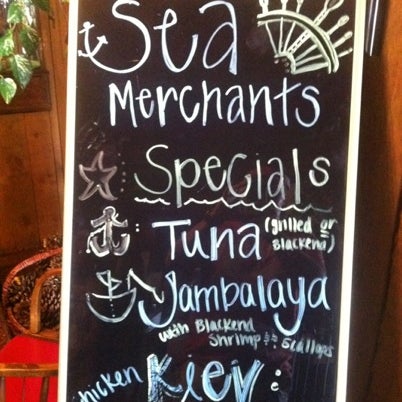 Sea
Merchants
Specials
: Tuna (grilled or Blackend)
Jambalaya
with Blackend
Shrimp & Scallops
Chicken Kiev :